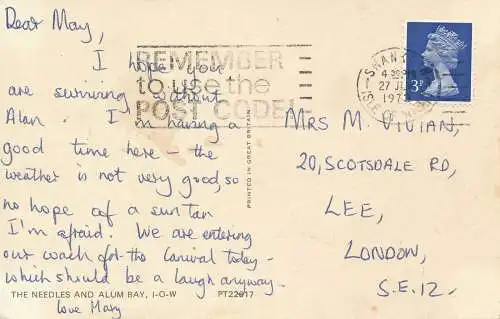 Dear May,
I hope you
are surviving without
Alan. I'm having a
good time here - the
weather is not very good, so
no hope of a sun tan
I'm afraid. We are entering
our coach for the Carnival today -
which should be a laugh anyway.
THE NEEDLES AND ALUM BAY, I-O-W
PT22617
love Mary
REMEMBER
to use the
POST CODE!
PRINTED IN GREAT BRITAIN
SHANKLIN
27 JL
197
3P
MRS M. VIVIAN,
20, SCOTSDALE RD,
LEE,
LONDON,
S.E.12.